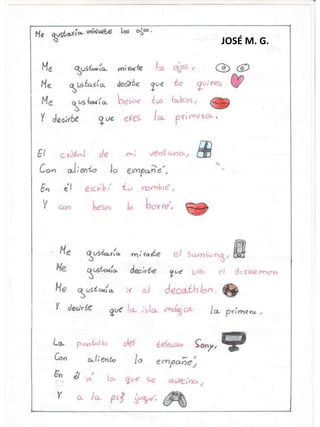 Me gustaría mirarte los ojos.
JOSÉ M. G.
Me gustaría mirarte los ojos,
Me gustaría decirte que te quiero
Me gustaría besar tus labios,
Y decirte que eres la primera.
El cristal de mi ventana,
Con aliento lo empañé,
En él escribí tu nombre,
Y con besos lo borré.
Me gustaría mirarte el Samsung,
Me gustaría decirte que veo el doraemon
Me gustaría ir al decathlon.
Y decirte que la isla mágica la primera.
La pantalla del televisor Sony,
Con aliento lo empañé,
En él vi lo que se avecina,
Y a la ps3 jugué.